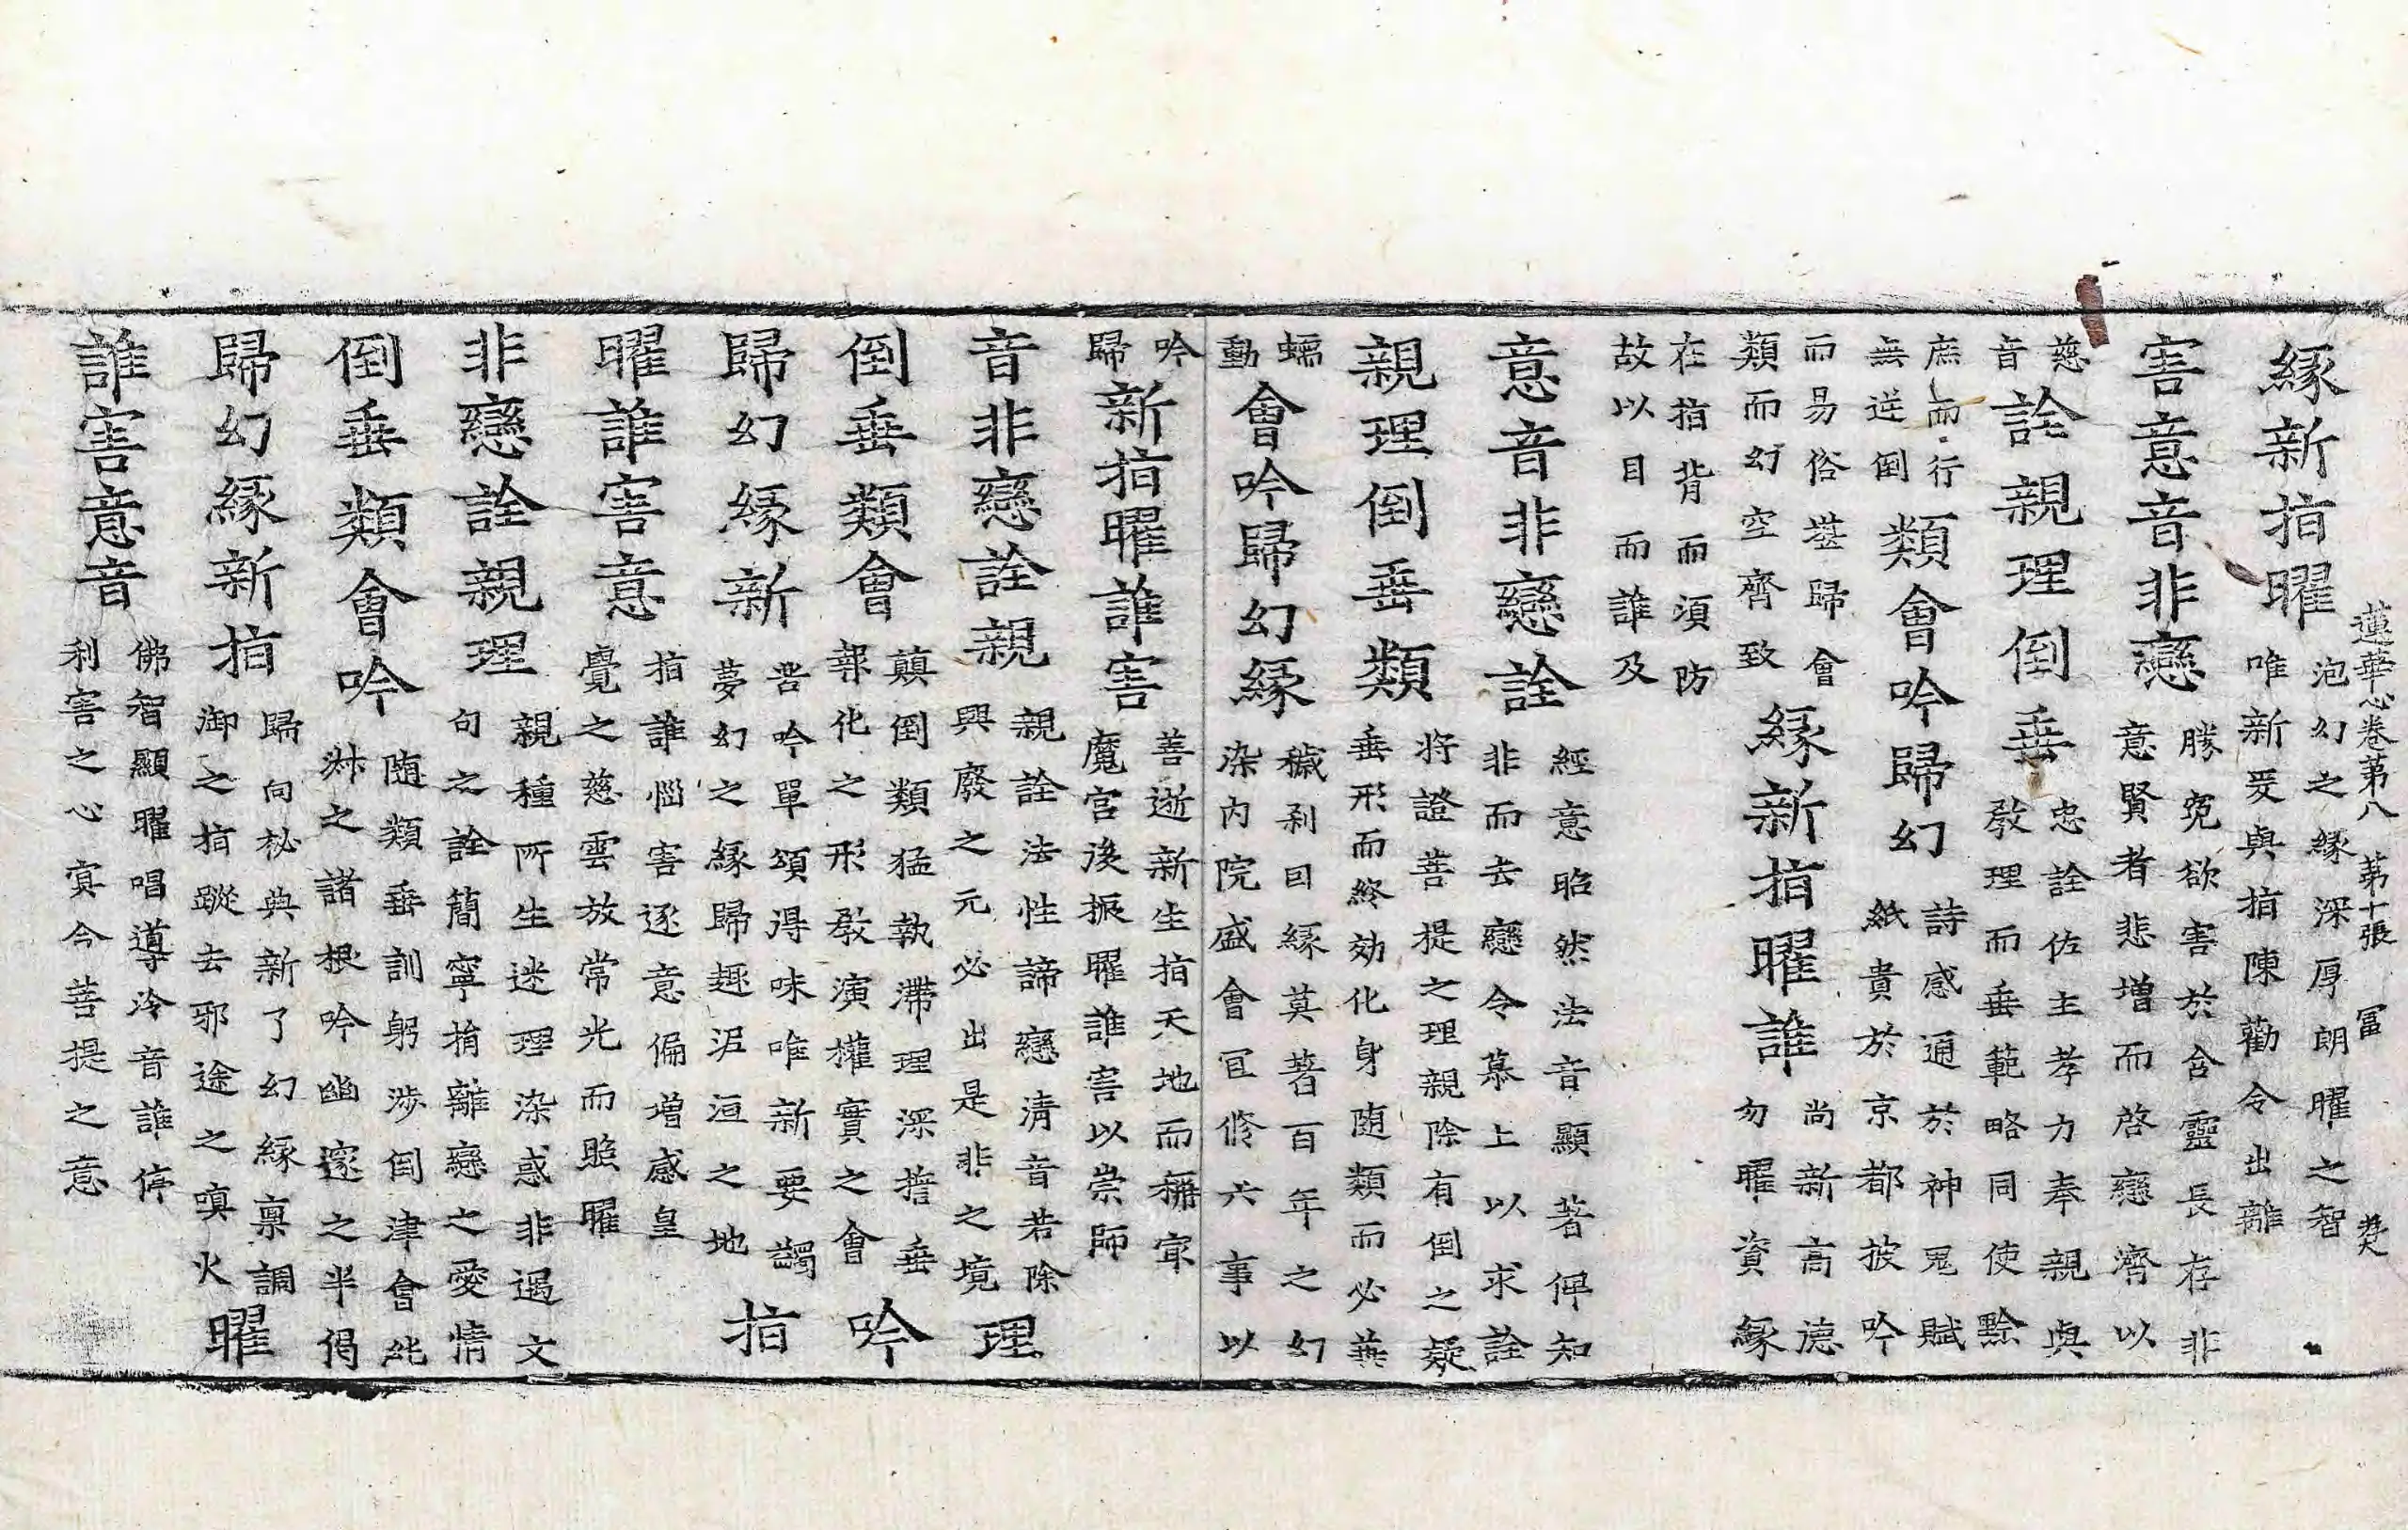 蓮華心卷第八 第十張 冨
緣新指曜 泡幻之緣深厚朗曜之智
唯新爰與指陳勸令出離
害意音非戀 勝寃欲害於含靈長存非
意賢者悲增而啓戀濟以
慈
音 詮親理倒垂 忠詮佐主孝力奉親與
敎理而垂範略同使黥
庶而行
無逆倒 類會吟歸幻 詩感通於神鬼賦
紙貴於京都披吟
而易俗堪歸會
類而幻空齊致 緣新指曜誰 尚新高德
勿曜資緣
在指背而須防
故以目而誰及
意音非戀詮 經意昭然法音顯著俾知
非而去戀令慕上以求詮
親理倒垂類 將證菩提之理親除有倒之疑
垂形而終効化身随類而必無
蠕
動 會吟歸幻緣 穢刹回緣莫著百年之幻
染內院盛會冝修六事以
吟
歸 新指曜誰害 善逝新生指天地而稱寂
魔宮後振曜誰害以崇師
音非戀詮親 親詮法性諦戀淸音若除
興廢之元必出是非之境 理
倒垂類會 顚倒類猛執滯理深擔垂
報化之形敎演權實之會 吟
歸幻緣新 苦吟單頌得味唯新要蠲
夢幻之緣歸趣泥洹之地 指
曜誰害意 指誰惱害逐意偏增感皇
覺之慈雲放常光而照曜
非戀詮親理 親種所生迷理染惑非遇文
句之詮簡寧捐離戀之愛情
倒垂類會吟 随類垂訓躬涉倒津會此
之諸根吟幽邃之半偈
歸幻緣新指 歸向秘典新了幻緣禀調
御之指蹤去邪途之嗔火 曜
誰害意音 佛智顯曜唱導冷音誰停
利害之心寞今菩提之意